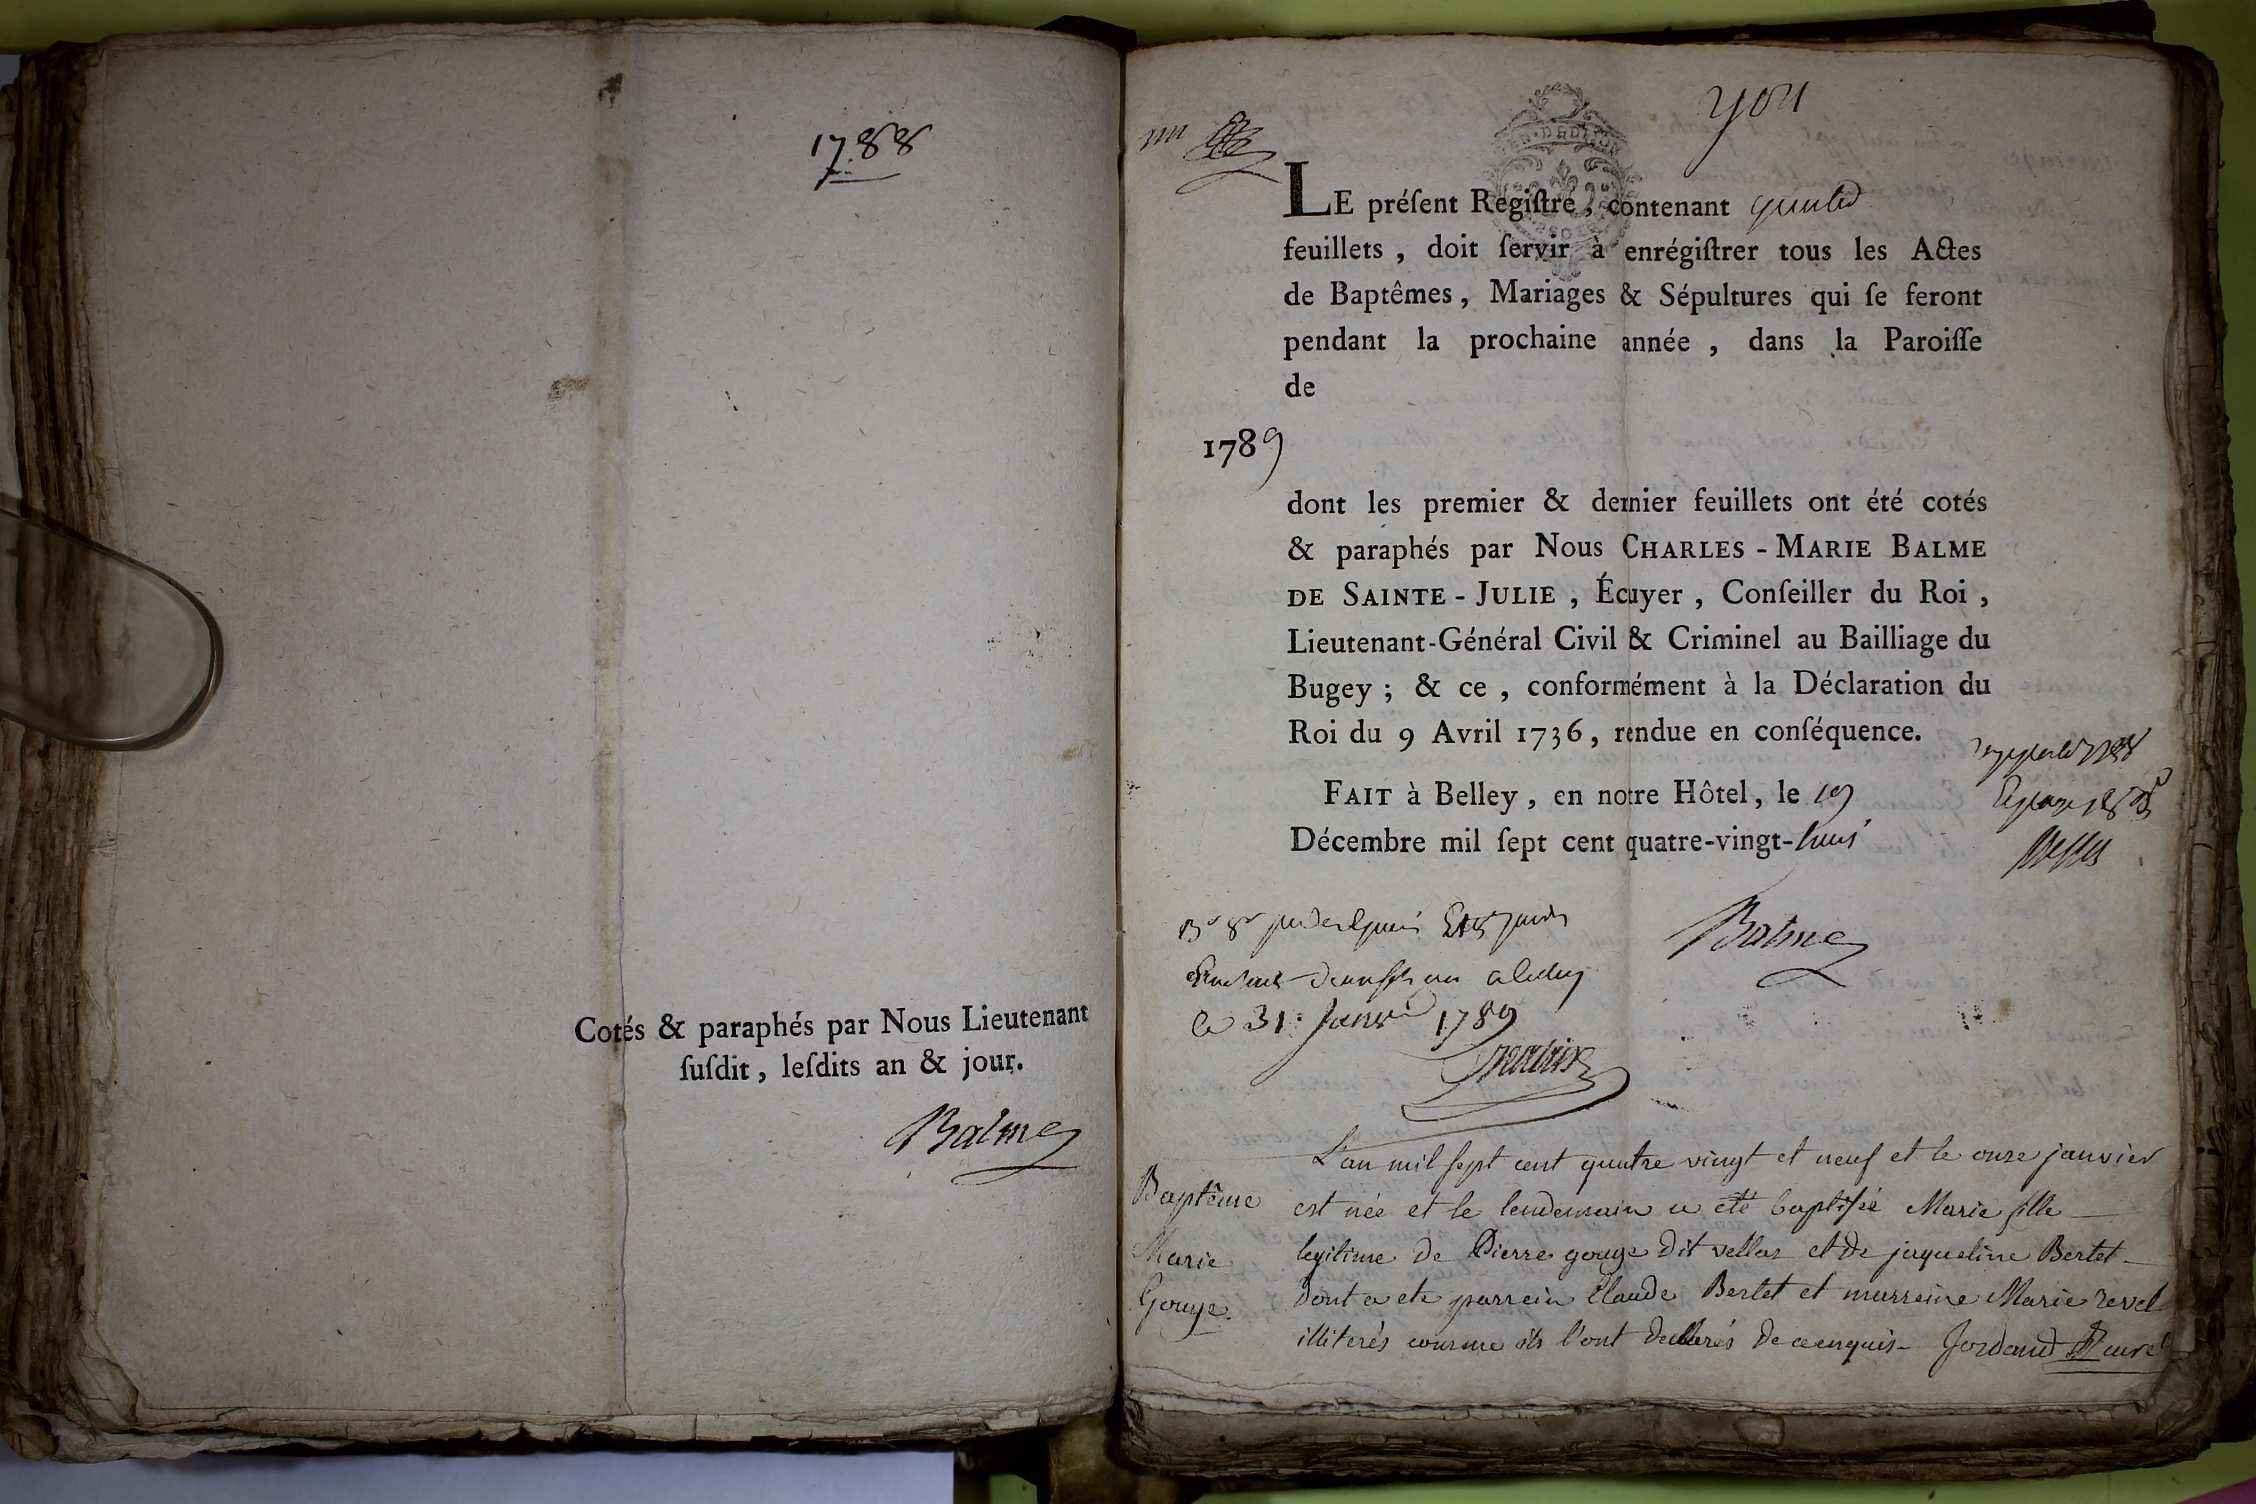 1788
Cotés & paraphés par Nous Lieutenant
ſuſdit, leſdits an & jour.
Balme
you
LE préſent Regiſtre, contenant
feuillets, doit ſervir à enrégiſtrer tous les Actes
de Baptêmes, Mariages & Sépultures qui ſe feront
pendant la prochaine année, dans la Paroiſſe
de
1789
dont les premier & dernier feuillets ont été cotés
& paraphés par Nous CHARLES-MARIE BALME
DE SAINTE-JULIE, Écuyer, Conſeiller du Roi,
Lieutenant-Général Civil & Criminel au Bailliage du
Bugey; & ce, conformément à la Déclaration du
Roi du 9 Avril 1736, rendue en conſéquence.
FAIT à Belley, en notre Hôtel, le 19
Décembre mil ſept cent quatre-vingt-huit
Balme
le 31 Janvr 1789
L'an mil sept cent quatre vingt et neuf et le onze janvier
Baptême est née et le lendemain a été baptisé Marie fille
Marie legitime de Pierre gouge dit vellas et de jaqueline Bertet
Gouge. dont a ete parrein Claude Bertet et marreine Marie revel
illiterés comme ils l'ont declarés de ce enquis - Jordand